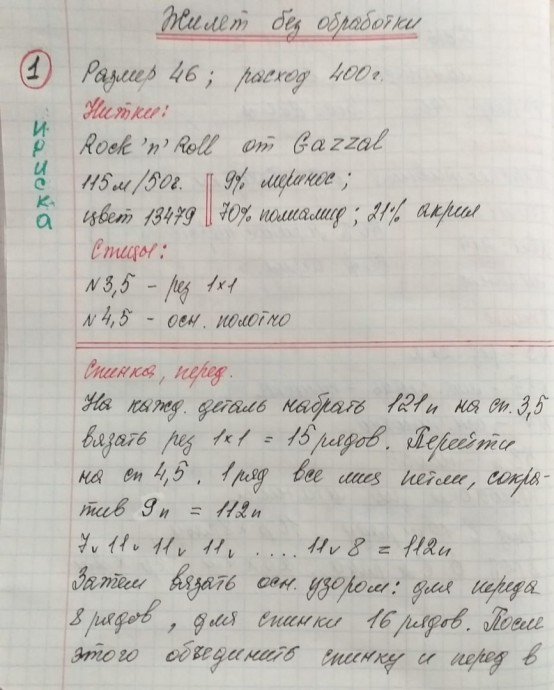 Жилет без обработки
1
Размер 46; расход 400г.
Нитки:
ириска
Rock'n'Roll от Gazzal
115м/50г. || 9% меринос;
цвет 13479 || 70% полиамид; 21% акрил
Спицы:
N3,5 - рез 1×1
N4,5 - осн. полотно
Спинка, перед.
На кажд. деталь набрать 121п на сп. 3,5
вязать рез 1×1 = 15 рядов. Перейти
на сп 4,5. 1 ряд все лиц петли, сокра-
тив 9п = 112п
7v 11v 11v 11v .... 11v 8 = 112п
Затем вязать осн. узором: для переда
8 рядов, для спинки 16 рядов. После
этого объединить спинку и перед в